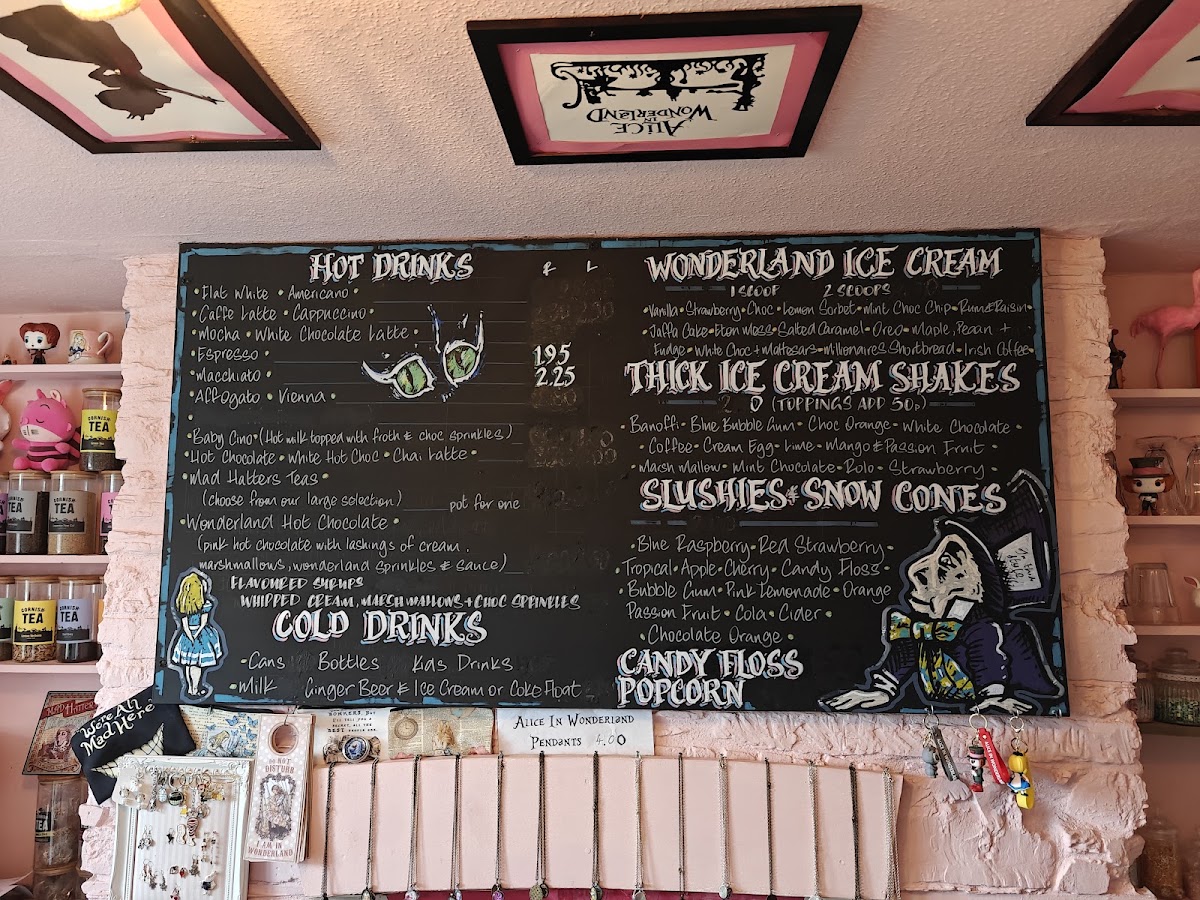 ALICE
IN
WONDERLAND
HOT DRINKS
• Flat White • Americano •
• Caffe Latte • Cappuccino •
• Mocha • White Chocolate Latte •
• Espresso • 1.95
• Macchiato • 2.25
• Affogato • Vienna •
• Baby Cino • (Hot milk topped with froth & choc sprinkles)
• Hot Chocolate • White Hot Choc • Chai Latte •
• Mad Hatters Teas •
(choose from our large selection) pot for one
• Wonderland Hot Chocolate •
(pink hot chocolate with lashings of cream.
marshmallows, wonderland sprinkles & sauce)
FLAVOURED SYRUPS
WHIPPED CREAM, MARSHMALLOWS + CHOC SPRINKLES
COLD DRINKS
• Cans Bottles Kids Drinks
• Milk Ginger Beer & Ice Cream or Coke Float
WONDERLAND ICE CREAM
1 SCOOP 2 SCOOPS
• Vanilla • Strawberry • Choc • Lemon Sorbet • Mint Choc Chip • Rum & Raisin •
Jaffa Cake • Eton Mess • Salted Caramel • Oreo • Maple, Pecan +
Fudge • White Choc + Maltesars • Millionaires Shortbread • Irish Coffee •
THICK ICE CREAM SHAKES
(TOPPINGS ADD 50p)
• Banoffi • Blue Bubble Gum • Choc Orange • White Chocolate •
Coffee • Cream Egg • Lime • Mango & Passion Fruit
Marsh Mallow • Mint Chocolate • Rolo • Strawberry •
SLUSHIES & SNOW CONES
• Blue Raspberry • Red Strawberry •
• Tropical • Apple • Cherry • Candy Floss •
• Bubble Gum • Pink Lemonade • Orange
Passion Fruit • Cola • Cider •
• Chocolate Orange •
CANDY FLOSS
POPCORN
CORNISH
TEA
CORNISH
TEA
CORNISH
TEA
CORNISH
TEA
CORNISH
TEA
MAD HATTER
We're All
Mad Here
DO NOT
DISTURB
I AM IN
WONDERLAND
ALICE IN WONDERLAND
PENDANTS 4.00